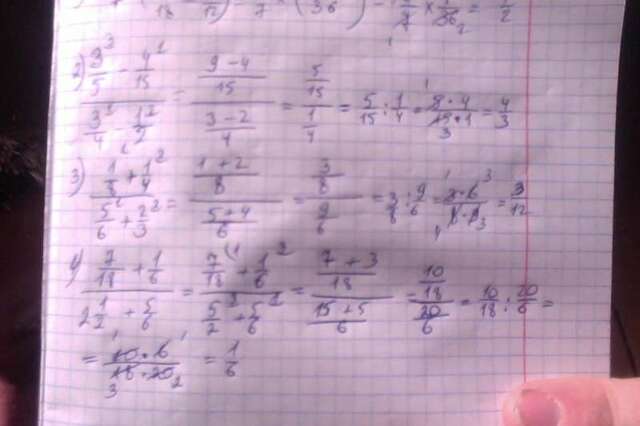 18 12 7 36 7 36 2 2
2) (3/5 - 4/15) / (3/4 - 1/2) = ((9-4)/15) / ((3-2)/4) = (5/15) / (1/4) = 5/15 : 1/4 = (5·4)/(15·1) = 4/3
3) (1/8 + 1/4) / (5/6 + 2/3) = ((1+2)/8) / ((5+4)/6) = (3/8) / (9/6) = 3/8 : 9/6 = (3·6)/(8·9) = 3/12
4) (7/18 + 1/6) / (2 1/2 + 5/6) = (7/18 + 1/6) / (5/2 + 5/6) = ((7+3)/18) / ((15+5)/6) = (10/18) / (20/6) = 10/18 : 20/6 =
= (10·6)/(18·20) = 1/6